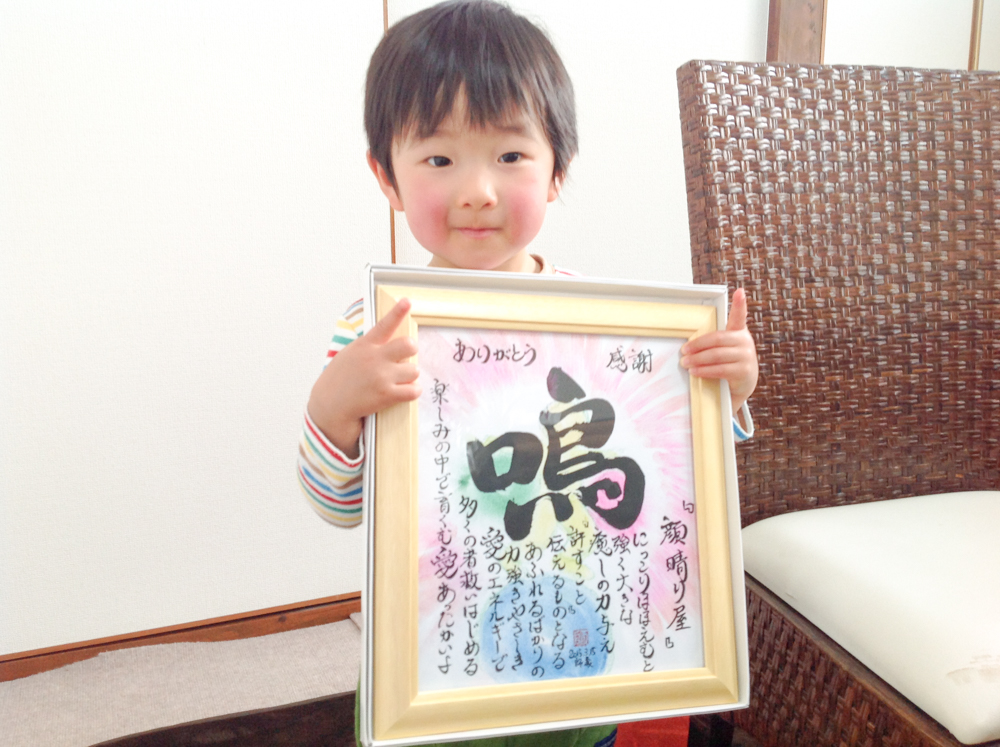 ありがとう
感謝
鳴
『顔晴り屋』
にっこりほほえむと
強く
癒しの力与え
『許すこと』
伝えるものとなる
あふれるばかりの
力強きやさしき
愛のエネルギーで
多くの者救いはじめる
楽しみの中で育くむ愛あったかいよ